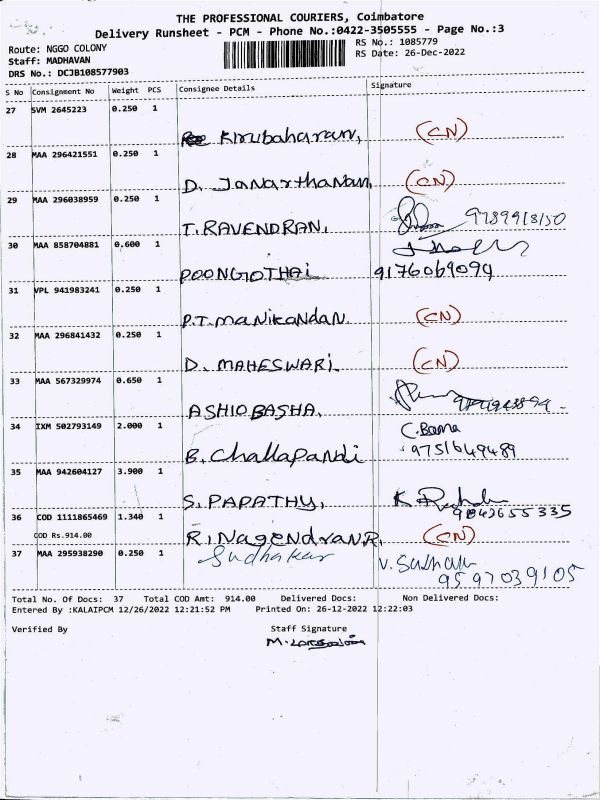 THE PROFESSIONAL COURIERS, Coimbatore
Delivery Runsheet - PCM - Phone No.:0422-3505555 - Page No.:3
Route: NGGO COLONY
RS No.: 1085779
Staff: MADHAVAN
RS Date: 26-Dec-2022
DRS No.: DCJB108577903
S No Consignment No Weight PCS Consignee Details Signature
27 SVM 2645223 0.250 1
Kirubaharan, (CN)
28 MAA 296421551 0.250 1
D. Janarthanan, (CN)
29 MAA 296038959 0.250 1
T. RAVENDRAN. 9789418150
30 MAA 858704881 0.600 1
POONGOTHAI 9176069094
31 VPL 941983241 0.250 1
P.T. maNikandan. (CN)
32 MAA 296841432 0.250 1
D. MAHESWARi (CN)
33 MAA 567329974 0.650 1
ASHIQ BASHA.
34 IXM 502793149 2.000 1 C. Bama
B. Challapandi 9751649489
35 MAA 942604127 3.900 1
S. PAPATHY, 9842655335
36 COD 1111865469 1.340 1
COD Rs.914.00 R. Nagendran R. (CN)
37 MAA 295938290 0.250 1 Sudhakar
9597039105
Total No. Of Docs: 37 Total COD Amt: 914.00 Delivered Docs: Non Delivered Docs:
Entered By :KALAIPCM 12/26/2022 12:21:52 PM Printed On: 26-12-2022 12:22:03
Verified By Staff Signature